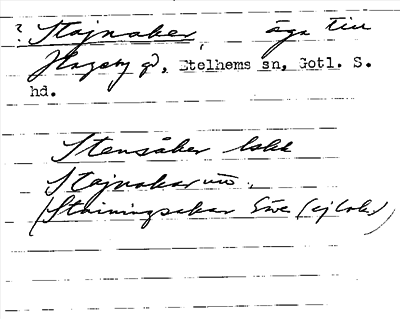 ? Stajnaker, äga till
Hageby gd, Etelhems sn, Gotl. S.
hd.
Stensåker
Stajnakar
Stainingsakar (ej lok.)